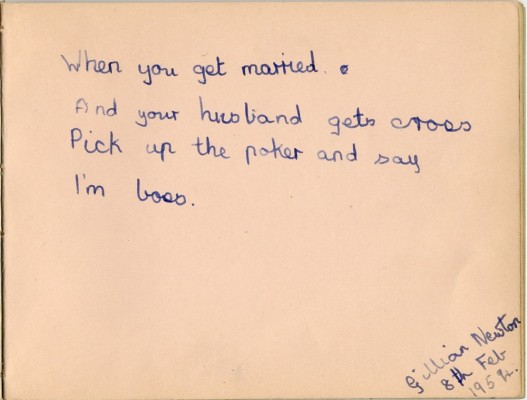 When you get married.
And your husband gets cross
Pick up the poker and say
I'm boss.
Gillian Newton
8th Feb